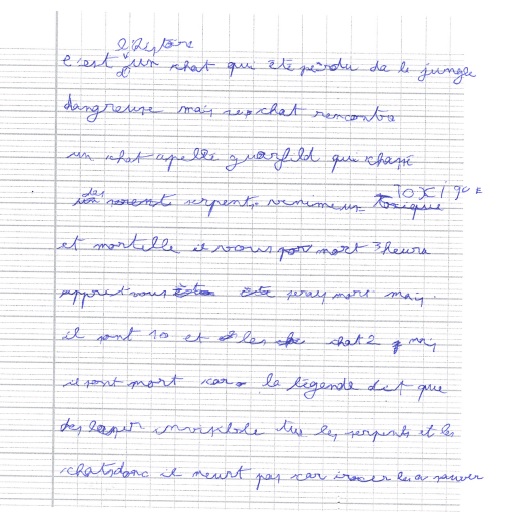 l'histoire
c'est d'un chat qui été perdu da le jungle
dangreuse mais se chat rencontra
un chat apellé guarfild qui chasse
des serpents venimeux TOXIQUE
et mortelle il vous mort 3 heura
appret vous seray mort mais
il sont 10 et les chat 2 mais
il sont mort car la légende dit que
des laser invisible tue les serpents et les
chats donc il meurt pas car les a sauver